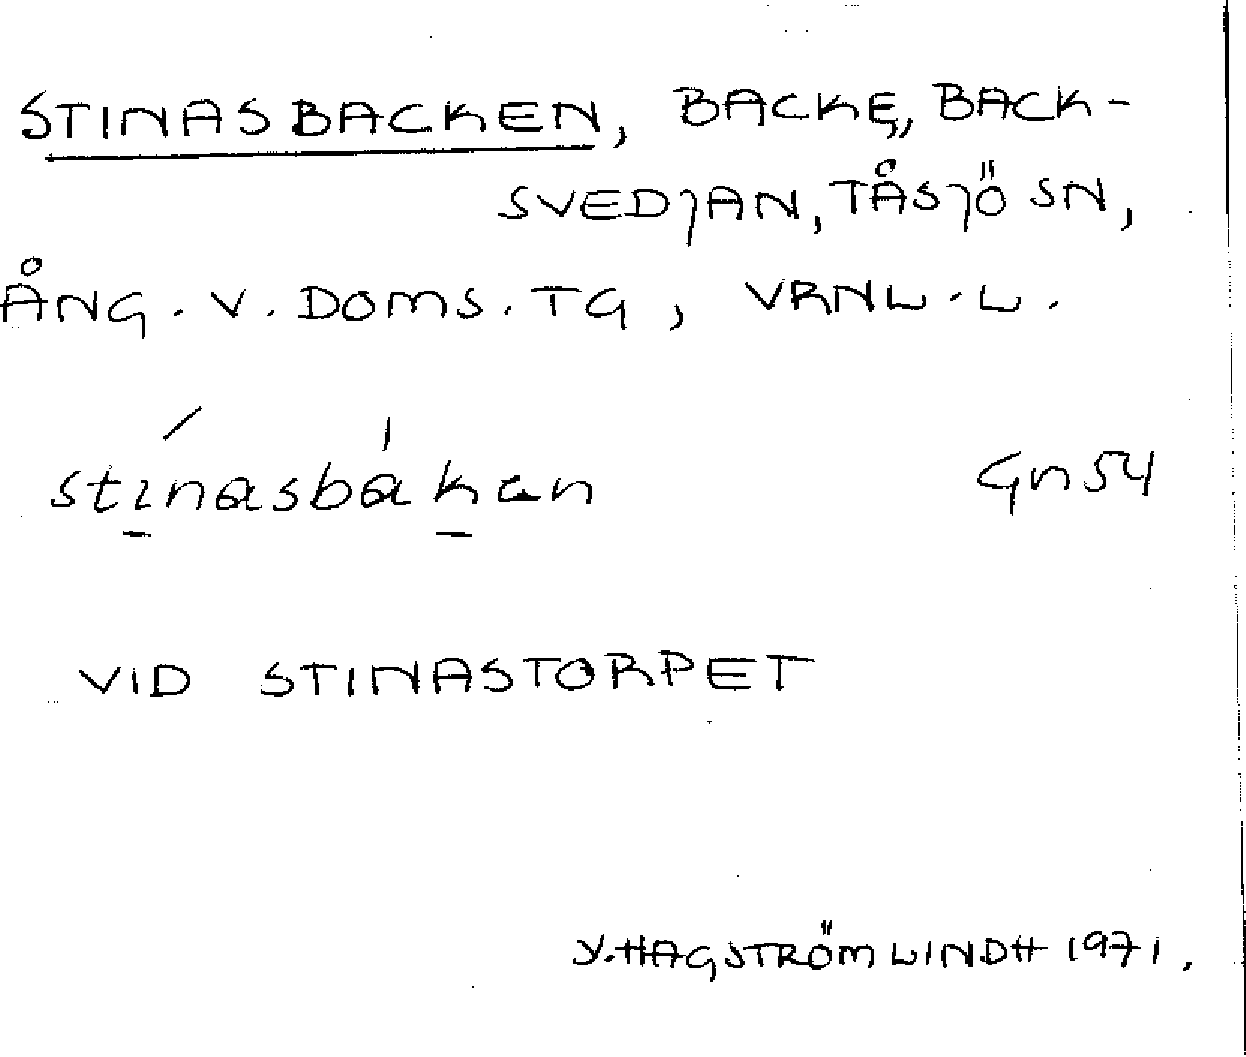 STINASBACKEN, BACKE, BACK-
SVEDJAN, TÅSJÖ SN,
ÅNG. V. DOMS. TG, VRNL. L.
stinasbakan Gn54
VID STINASTORPET
Y. HAGSTRÖM LINDH 1971.